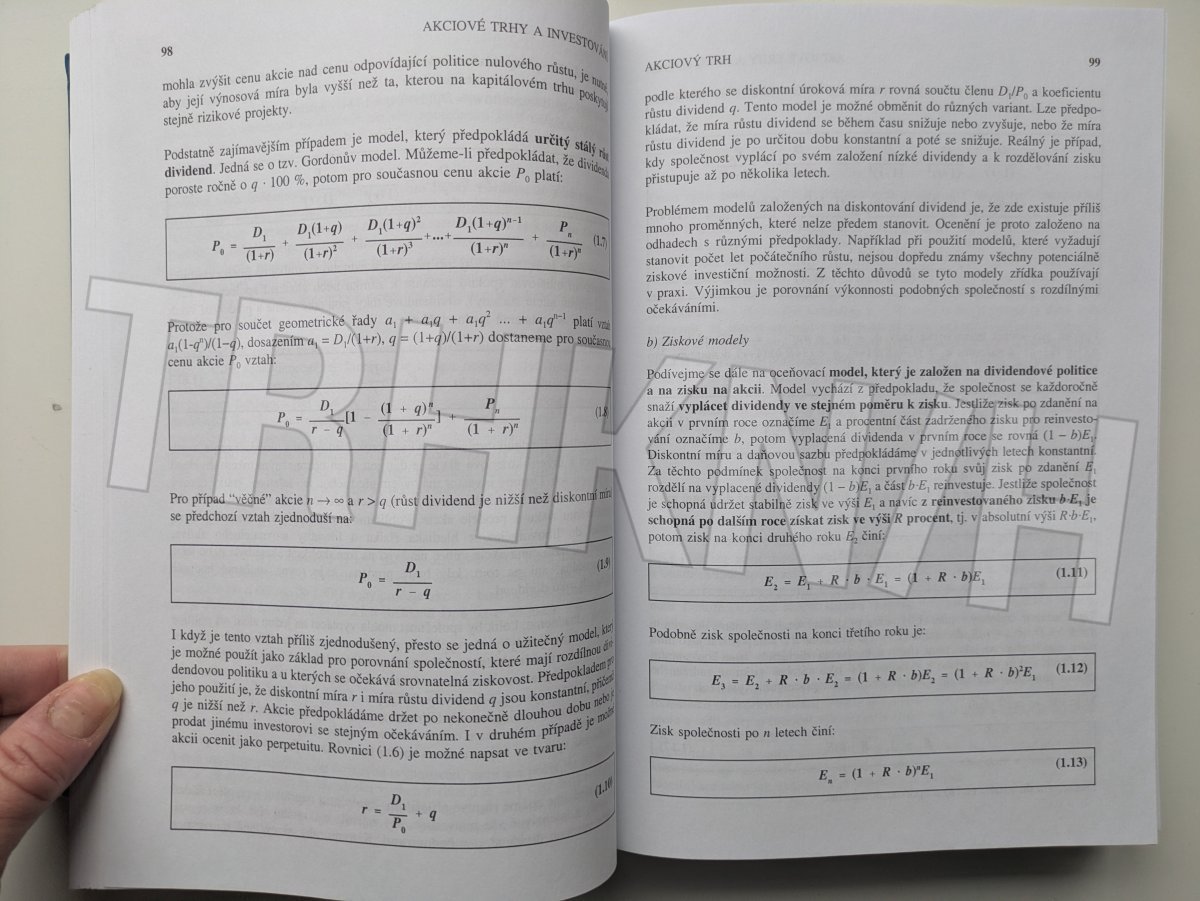 98
AKCIOVÉ TRHY A INVESTOVÁNÍ
mohla zvýšit cenu akcie nad cenu odpovídající politice nulového růstu, je nutné,
aby její výnosová míra byla vyšší než ta, kterou na kapitálovém trhu poskytují
stejně rizikové projekty.
Podstatně zajímavějším případem je model, který předpokládá určitý stálý růst
dividend. Jedná se o tzv. Gordonův model. Můžeme-li předpokládat, že dividenda
poroste ročně o q · 100 %, potom pro současnou cenu akcie P₀ platí:
P₀ = D₁/(1+r) + D₁(1+q)/(1+r)² + D₁(1+q)²/(1+r)³ +...+ D₁(1+q)ⁿ⁻¹/(1+r)ⁿ + Pₙ/(1+r)ⁿ (1.7)
Protože pro součet geometrické řady a₁ + a₁q + a₁q² ... + a₁qⁿ⁻¹ platí vztah
a₁(1-qⁿ)/(1-q), dosazením a₁ = D₁/(1+r), q = (1+q)/(1+r) dostaneme pro současnou
cenu akcie P₀ vztah:
P₀ = D₁/(r - q) [1 - (1 + q)ⁿ/(1 + r)ⁿ] + Pₙ/(1 + r)ⁿ (1.8)
Pro případ “věčné” akcie n → ∞ a r > q (růst dividend je nižší než diskontní míra)
se předchozí vztah zjednoduší na:
P₀ = D₁/(r - q) (1.9)
I když je tento vztah příliš zjednodušený, přesto se jedná o užitečný model, který
je možné použít jako základ pro porovnání společností, které mají rozdílnou divi-
dendovou politiku a u kterých se očekává srovnatelná ziskovost. Předpokladem pro
jeho použití je, že diskontní míra r i míra růstu dividend q jsou konstantní, přičemž
q je nižší než r. Akcie předpokládáme držet po nekonečně dlouhou dobu nebo je
prodat jinému investorovi se stejným očekáváním. I v druhém případě je možné
akcii ocenit jako perpetuitu. Rovnici (1.6) je možné napsat ve tvaru:
r = D₁/P₀ + q (1.10)
AKCIOVÝ TRH
99
podle kterého se diskontní úroková míra r rovná součtu členu D₁/P₀ a koeficientu
růstu dividend q. Tento model je možné obměnit do různých variant. Lze předpo-
kládat, že míra růstu dividend se během času snižuje nebo zvyšuje, nebo že míra
růstu dividend je po určitou dobu konstantní a poté se snižuje. Reálný je případ,
kdy společnost vyplácí po svém založení nízké dividendy a k rozdělování zisku
přistupuje až po několika letech.
Problémem modelů založených na diskontování dividend je, že zde existuje příliš
mnoho proměnných, které nelze předem stanovit. Ocenění je proto založeno na
odhadech s různými předpoklady. Například při použití modelů, které vyžadují
stanovit počet let počátečního růstu, nejsou dopředu známy všechny potenciálně
ziskové investiční možnosti. Z těchto důvodů se tyto modely zřídka používají
v praxi. Výjimkou je porovnání výkonnosti podobných společností s rozdílnými
očekáváními.
b) Ziskové modely
Podívejme se dále na oceňovací model, který je založen na dividendové politice
a na zisku na akcii. Model vychází z předpokladu, že společnost se každoročně
snaží vyplácet dividendy ve stejném poměru k zisku. Jestliže zisk po zdanění na
akcii v prvním roce označíme E₁ a procentní část zadrženého zisku pro reinvesto-
vání označíme b, potom vyplacená dividenda v prvním roce se rovná (1 - b)E₁.
Diskontní míru a daňovou sazbu předpokládáme v jednotlivých letech konstantní.
Za těchto podmínek společnost na konci prvního roku svůj zisk po zdanění E₁
rozdělí na vyplacené dividendy (1 - b)E₁ a část b·E₁ reinvestuje. Jestliže společnost
je schopná udržet stabilně zisk ve výši E₁ a navíc z reinvestovaného zisku b·E₁ je
schopná po dalším roce získat zisk ve výši R procent, tj. v absolutní výši R·b·E₁,
potom zisk na konci druhého roku E₂ činí:
E₂ = E₁ + R · b · E₁ = (1 + R · b)E₁ (1.11)
Podobně zisk společnosti na konci třetího roku je:
E₃ = E₂ + R · b · E₂ = (1 + R · b)E₂ = (1 + R · b)²E₁ (1.12)
Zisk společnosti po n letech činí:
Eₙ = (1 + R · b)ⁿE₁ (1.13)
TRHKNIH